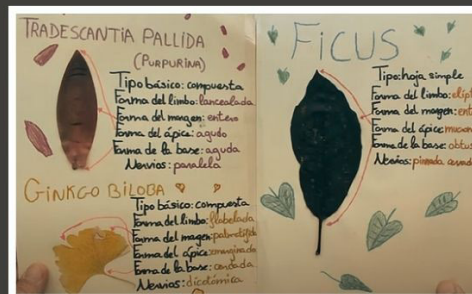 TRADESCANTIA PALLIDA
(PURPURINA)
Tipo básico: compuesta
Forma del limbo: lanceolada
Forma del margen: entero
Forma del ápice: agudo
Forma de la base: aguda
Nervios: paralela
GINKGO BILOBA
Tipo básico: compuesta
Forma del limbo: flabelada
Forma del magen: palmatífida
Forma del ápice: emarginada
Forma de la base:
Nervios: dicotómica
FICUS
Tipo: hoja simple
Forma del limbo:
Forma del margen:
Forma del ápice:
Forma de la base:
Nervios: pinnada